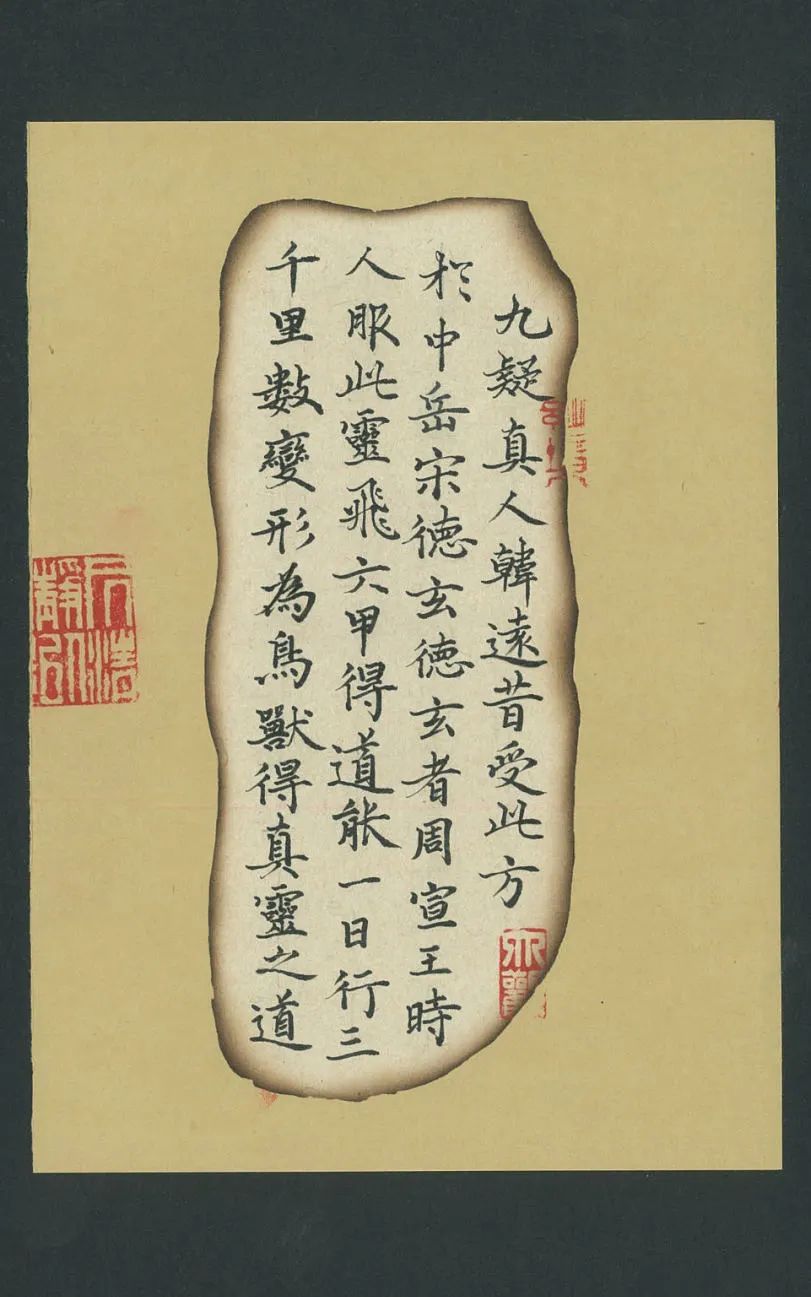 九疑真人韓遠昔受此方
扵中岳宋徳玄徳玄者周宣王時
人服此靈飛六甲得道能一日行三
千里數變形為鳥獸得真靈之道